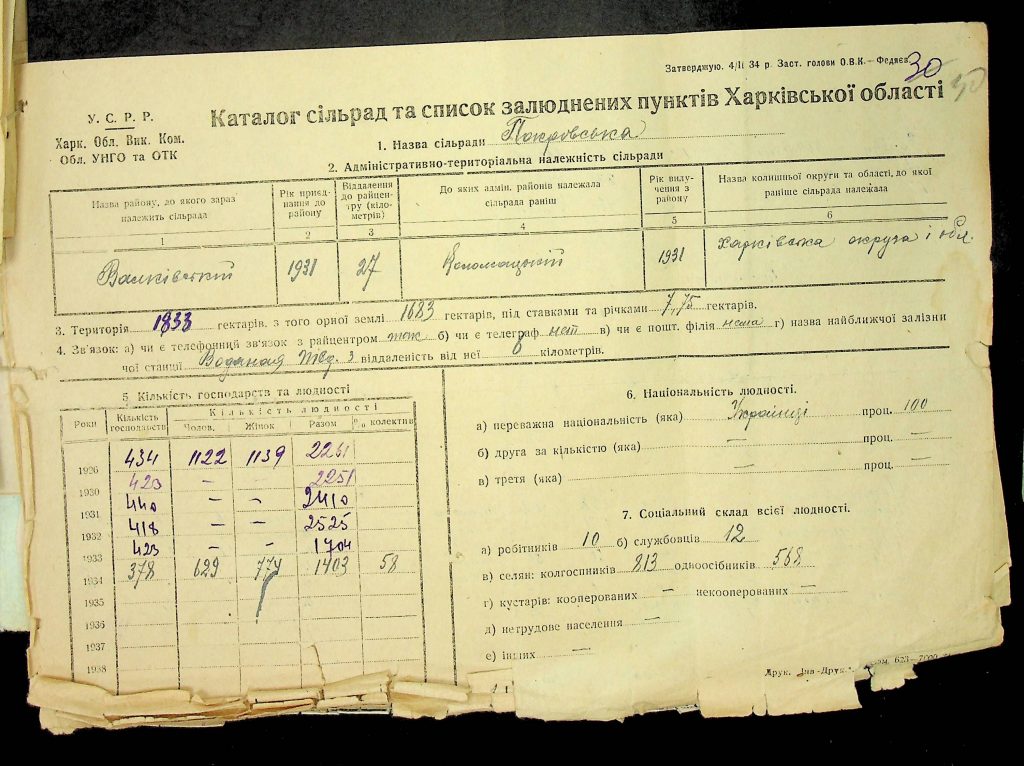 Затверджую. 4/II 34 р. Заст. голови О.В.К.— Федяєв
30
У. С. Р. Р.
Харк. Обл. Вик. Ком.
Обл. УНГО та ОТК
Каталог сільрад та список залюднених пунктів Харківської області
1. Назва сільради Покровська
2. Адміністративно-територіальна належність сільради
Назва району, до якого зараз належить сільрада | Рік приєднання до району | Віддалення до райцентру (кілометрів) | До яких адмін. районів належала сільрада раніш | Рік вилучення з району | Назва колишньої округи та області, до якої раніше сільрада належала
1 | 2 | 3 | 4 | 5 | 6
Валківський | 1931 | 27 | Коломацький | 1931 | Харківська округа і обл.
3. Територія 1833 гектарів, з того орної землі 1683 гектарів, під ставками та річками 7,75 гектарів.
4. Зв'язок: а) чи є телефонний зв'язок з райцентром б) чи є телеграф нет в) чи є пошт. філія нема г) назва найближчої залізни
чої станції Водяная віддаленість від неї 8 кілометрів.
5 Кількість господарств та людності
Роки | Кількість господарств | Кількість людності
Чолов. | Жінок | Разом | % колектив
1926 | 434 | 1122 | 1139 | 2261
1930 | 423 | — | — | 2251
1931 | 440 | — | — | 2410
1932 | 418 | — | — | 2525
1933 | 423 | — | — | 1704
1934 | 378 | 629 | 774 | 1403 | 58
1935
1936
1937
1938
6. Національність людності.
а) переважна національність (яка) Українці проц. 100
б) друга за кількістю (яка) — проц. —
в) третя (яка) — проц. —
7. Соціальний склад всієї людності.
а) робітників 10 б) службовців 12
в) селян: колгоспників 813 одноосібників 568
г) кустарів: кооперованих — некооперованих —
д) нетрудове населення —
е) інших —
Друк.